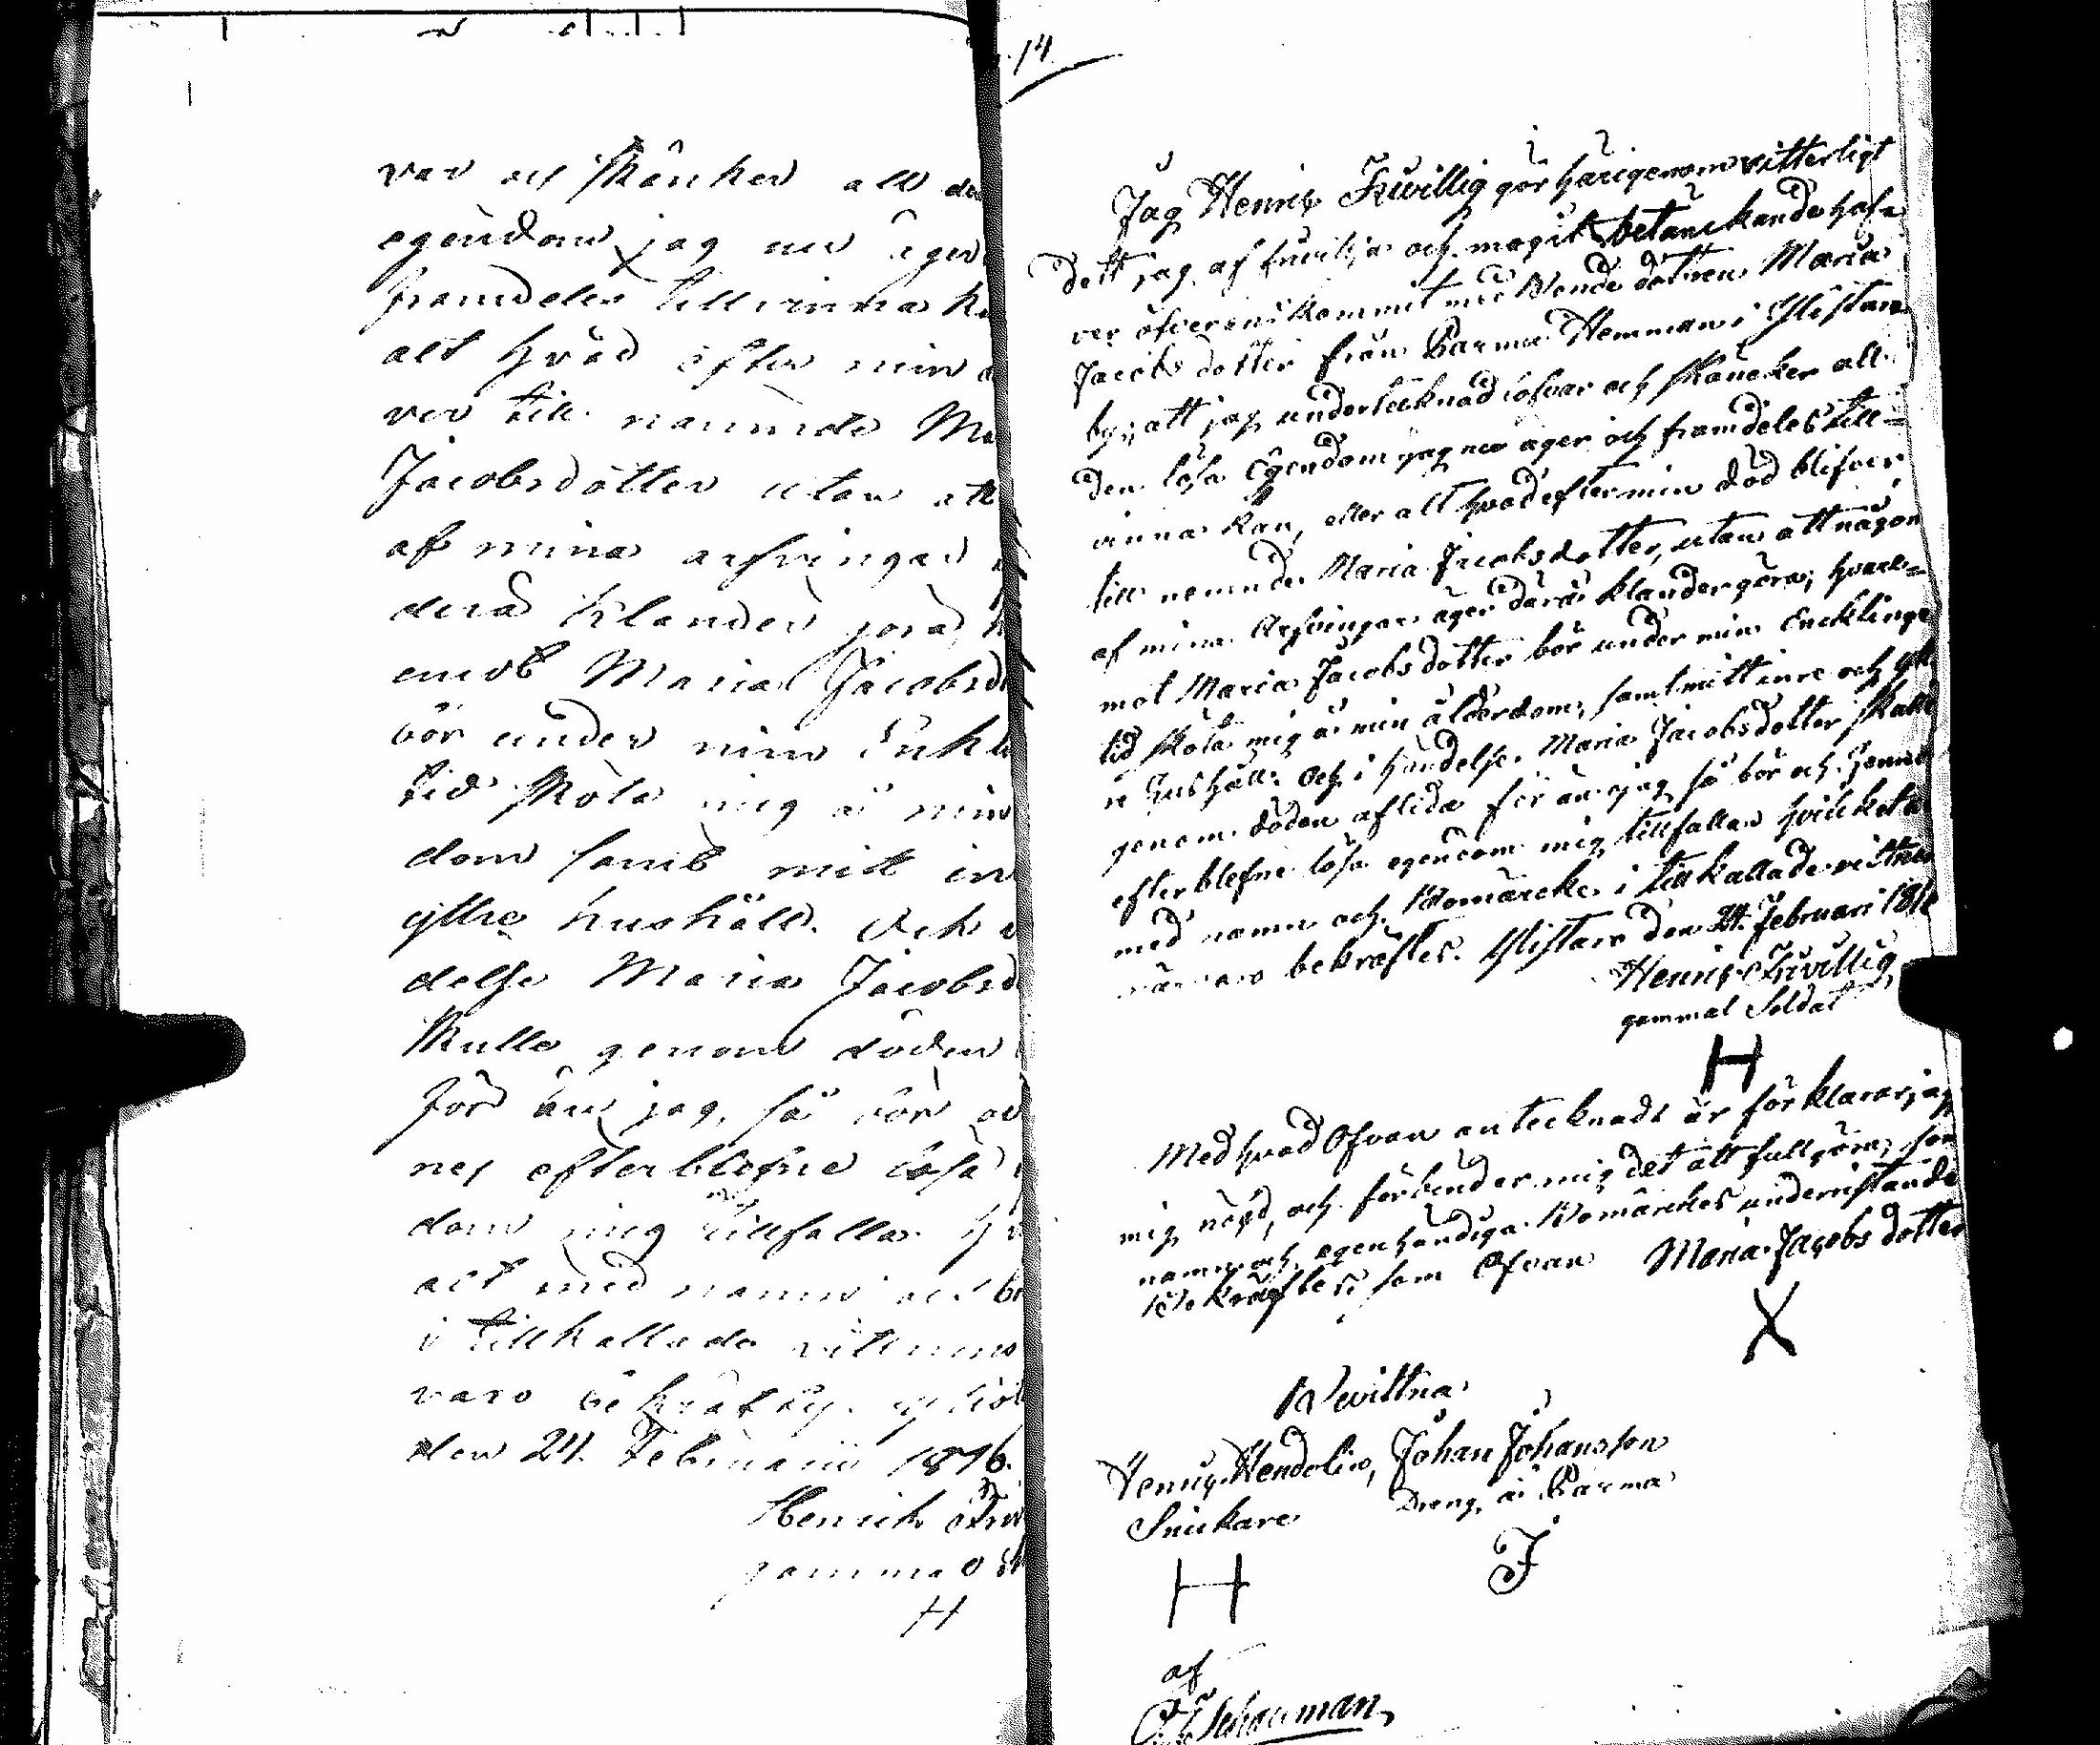 var och skänker all de
egendom jag nu äger
framdeles tillvinna k
alt hvad efter min d
ver till nämnde Ma
Jacobsdotter utan att
af mina arfvingar
derå klander göra, h
emot Maria Jacobsd
bör under min Enkl
tid sköta mig å min
dom samt mitt in
yttre hushåll. Och i
delse Maria Jacobsd
skulle genom döden
förr än jag, så bör oc
nes efterblefne lösa
dom mig tillfalla. Hv
alt med namn och bo
i tillkallade vittnens
varo bekräftas.
den 24. Februarii 1816.
Henrik Friv
gammal S
H
14
Jag Henric Friwillig gör härigenom vitterligt
dett jag af frivilja och moget betänckande haf-
ver öfverenskommit med Bonde dottren Maria
Jacobs dotter från Parma Hemman i Ylistaro
by, att jag undertecknad lofvar och skäncker all
den lösa Egendom jag nu äger och framdeles till=
vinna kan, eller alt hvad efter min död blifver
till nemnde Maria Jacobsdotter, utan att någon
af mina Arfvingar äger därå klander göra; hvare=
mot Maria Jacobsdotter bör under min Encklinge
tid sköta mig å min ålderdom, samt mitt inre och ytt
re hushåll. Och i händelse Maria Jacobsdotter skulle
genom döden aflida för än jag så bör och hennes
efterblefne lösa egendom mig tillfalla hvilcket alt
med namn och Bomärcke i tillkallade vittnen
närvaro bekräftes. Ylistaro den 24. Februari 181
Henric Friwillig
gammal Soldat
H
Med hvad Ofvan antecknadt är förklarar jag
mig nögd, och förbinder mig det att fullgöra, som
namn och egenhändiga Bomärckes underristande
Bekräftes, som Ofvan Maria Jacobs dotter
X
Bevittna
Henric Hendolin, Johan Johansson
Snickare Dreng å Parma
H J
af
Schauman